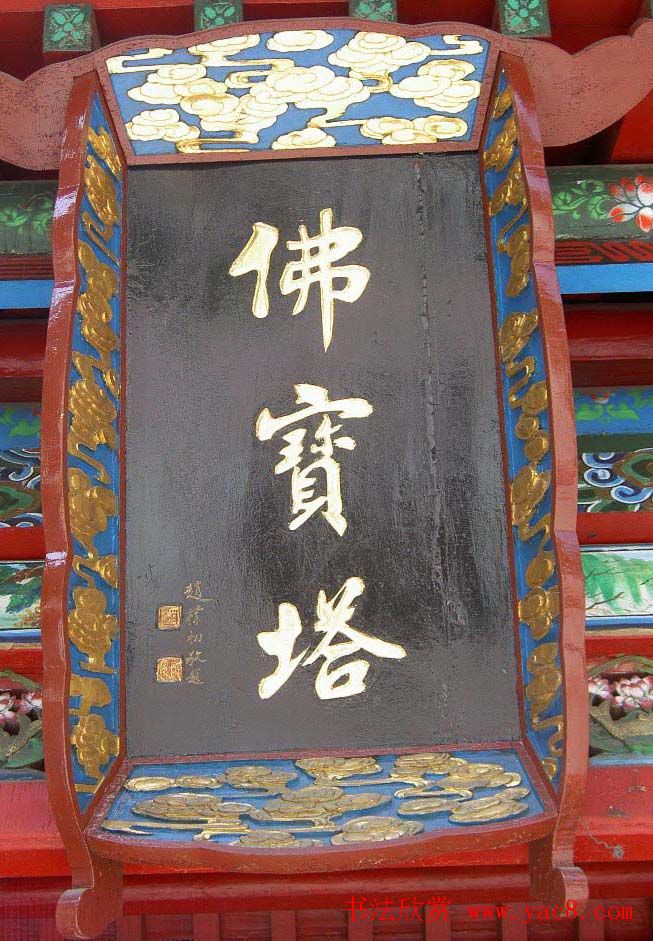 佛寶塔
趙樸初敬題
书法欣赏 www.yac8.com